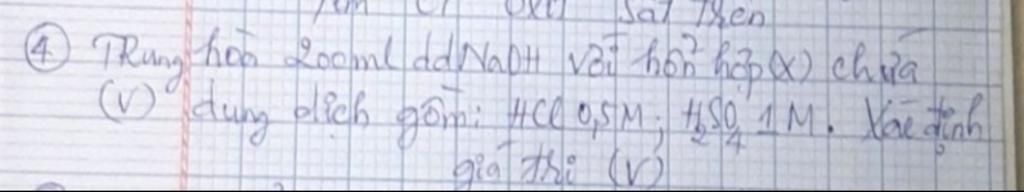 Tìm CT oxit sắt trên
④ Trung hoà 200ml ddNaOH với hỗn hợp (X) chứa
(V) dung dịch gồm: HCl 0,5M; H₂SO₄ 1M. Xác định
giá trị (V)